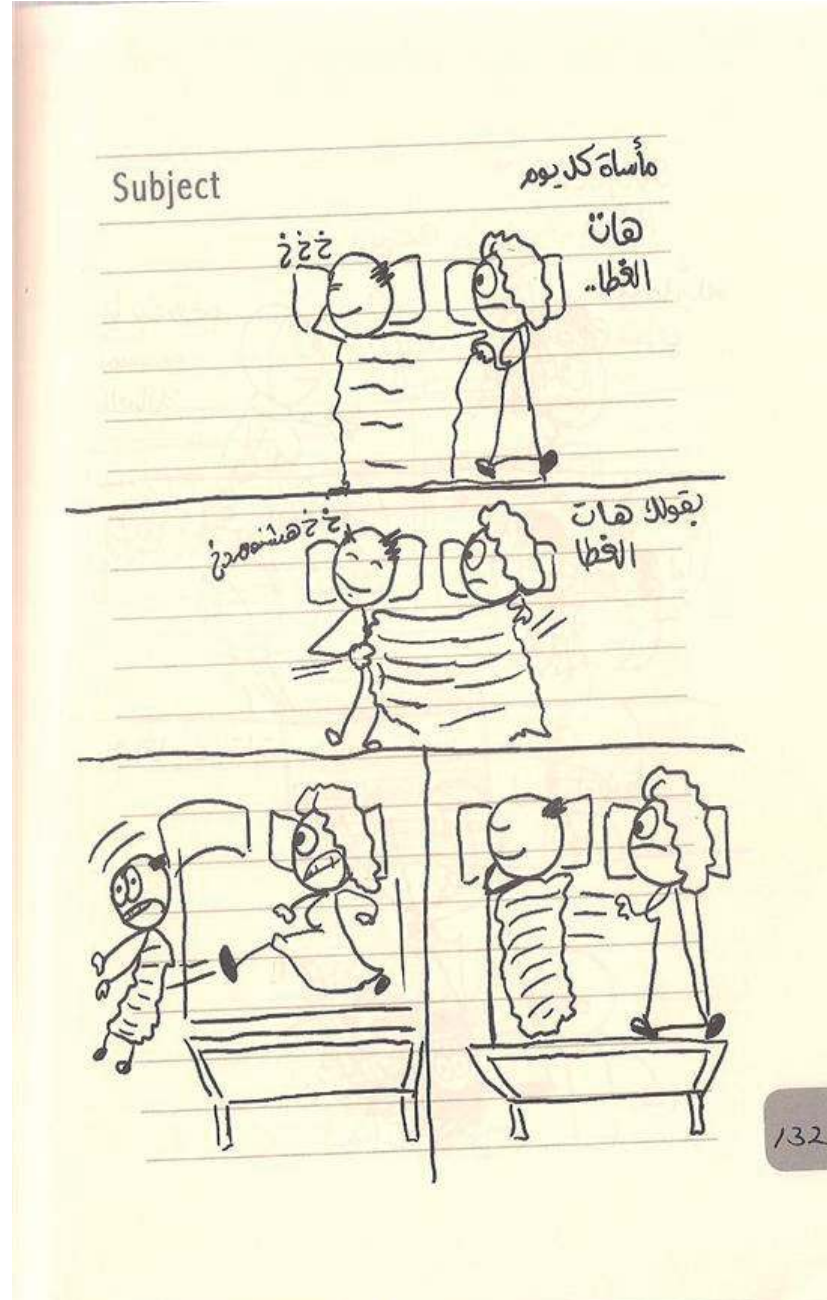 Subject
مأساة كل يوم
هات
الغطا..
خ خ خ
بقولك هات
الغطا
132